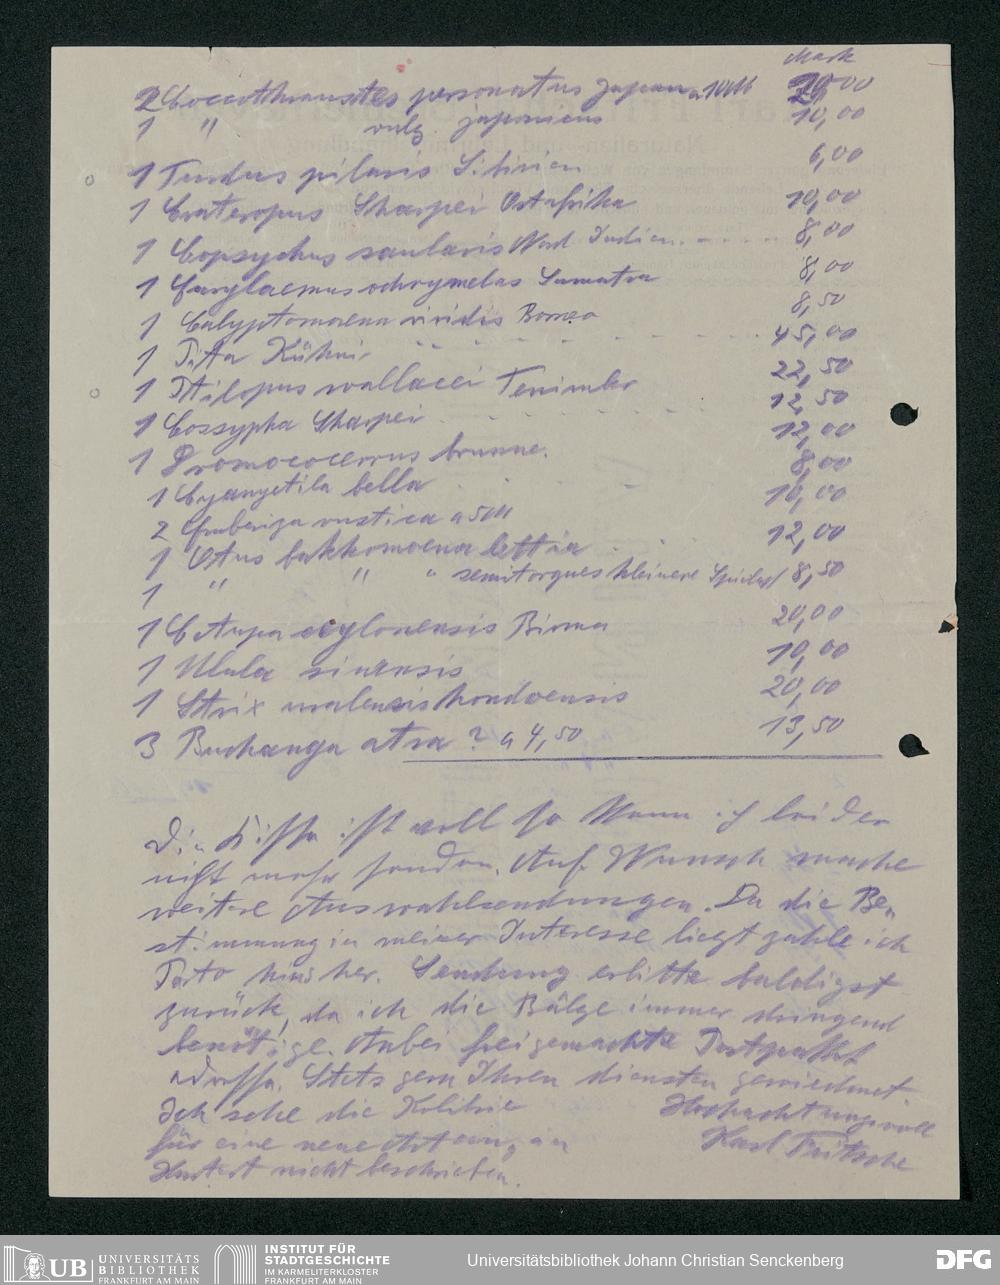 Mark
2 Coccothraustes personatus Japan a 10 M 20,00
1 " vulg. japonicus 10,00
1 Turdus pilaris Sibirien 6,00
1 Crateropus Sharpei Ostafrika 10,00
1 Copsychus saularis Nord Indien 8,00
1 ochrymelas Sumatra 8,00
1 Calyptomaena viridis Borneo 8,50
1 Pitta Kühni 45,00
1 Ptilopus wallacei Tenimber 22,50
1 Cossypha Sharpei 12,50
1 Dromococcyus brunne. 12,00
1 bella 8,00
2 Emberiza rustica a 5 M 10,00
1 Otus bakkomoena lettia 12,00
1 " " " semitorques kleinere 8,50
1 Ketupa ceylonensis Birma 20,00
1 Ulula sinensis 10,00
1 Strix uralensis hondoensis 20,00
3 Buchanga atra ? a 4,50 13,50
Die Kiste ist voll so kann ich leider
nicht mehr senden. Auf Wunsch mache
weitere Auswahlsendungen. Da die Be-
stimmung in meiner Interesse liegt zahle ich
Porto hin & her. Sendung erbitte baldigst
zurück, da ich die Bälge immer dringend
benötige. Anbei freigemachte Postpaket
adresse. Stets gern Ihren diensten gewiedmet
Ich sehe die Kolibrie Hochachtungsvoll
für eine neue Art an, Karl Fritsche
Hartert nicht beschrieben.
UB UNIVERSITÄTS
BIBLIOTHEK
FRANKFURT AM MAIN
INSTITUT FÜR
STADTGESCHICHTE
IM KARMELITERKLOSTER
FRANKFURT AM MAIN
Universitätsbibliothek Johann Christian Senckenberg
DFG